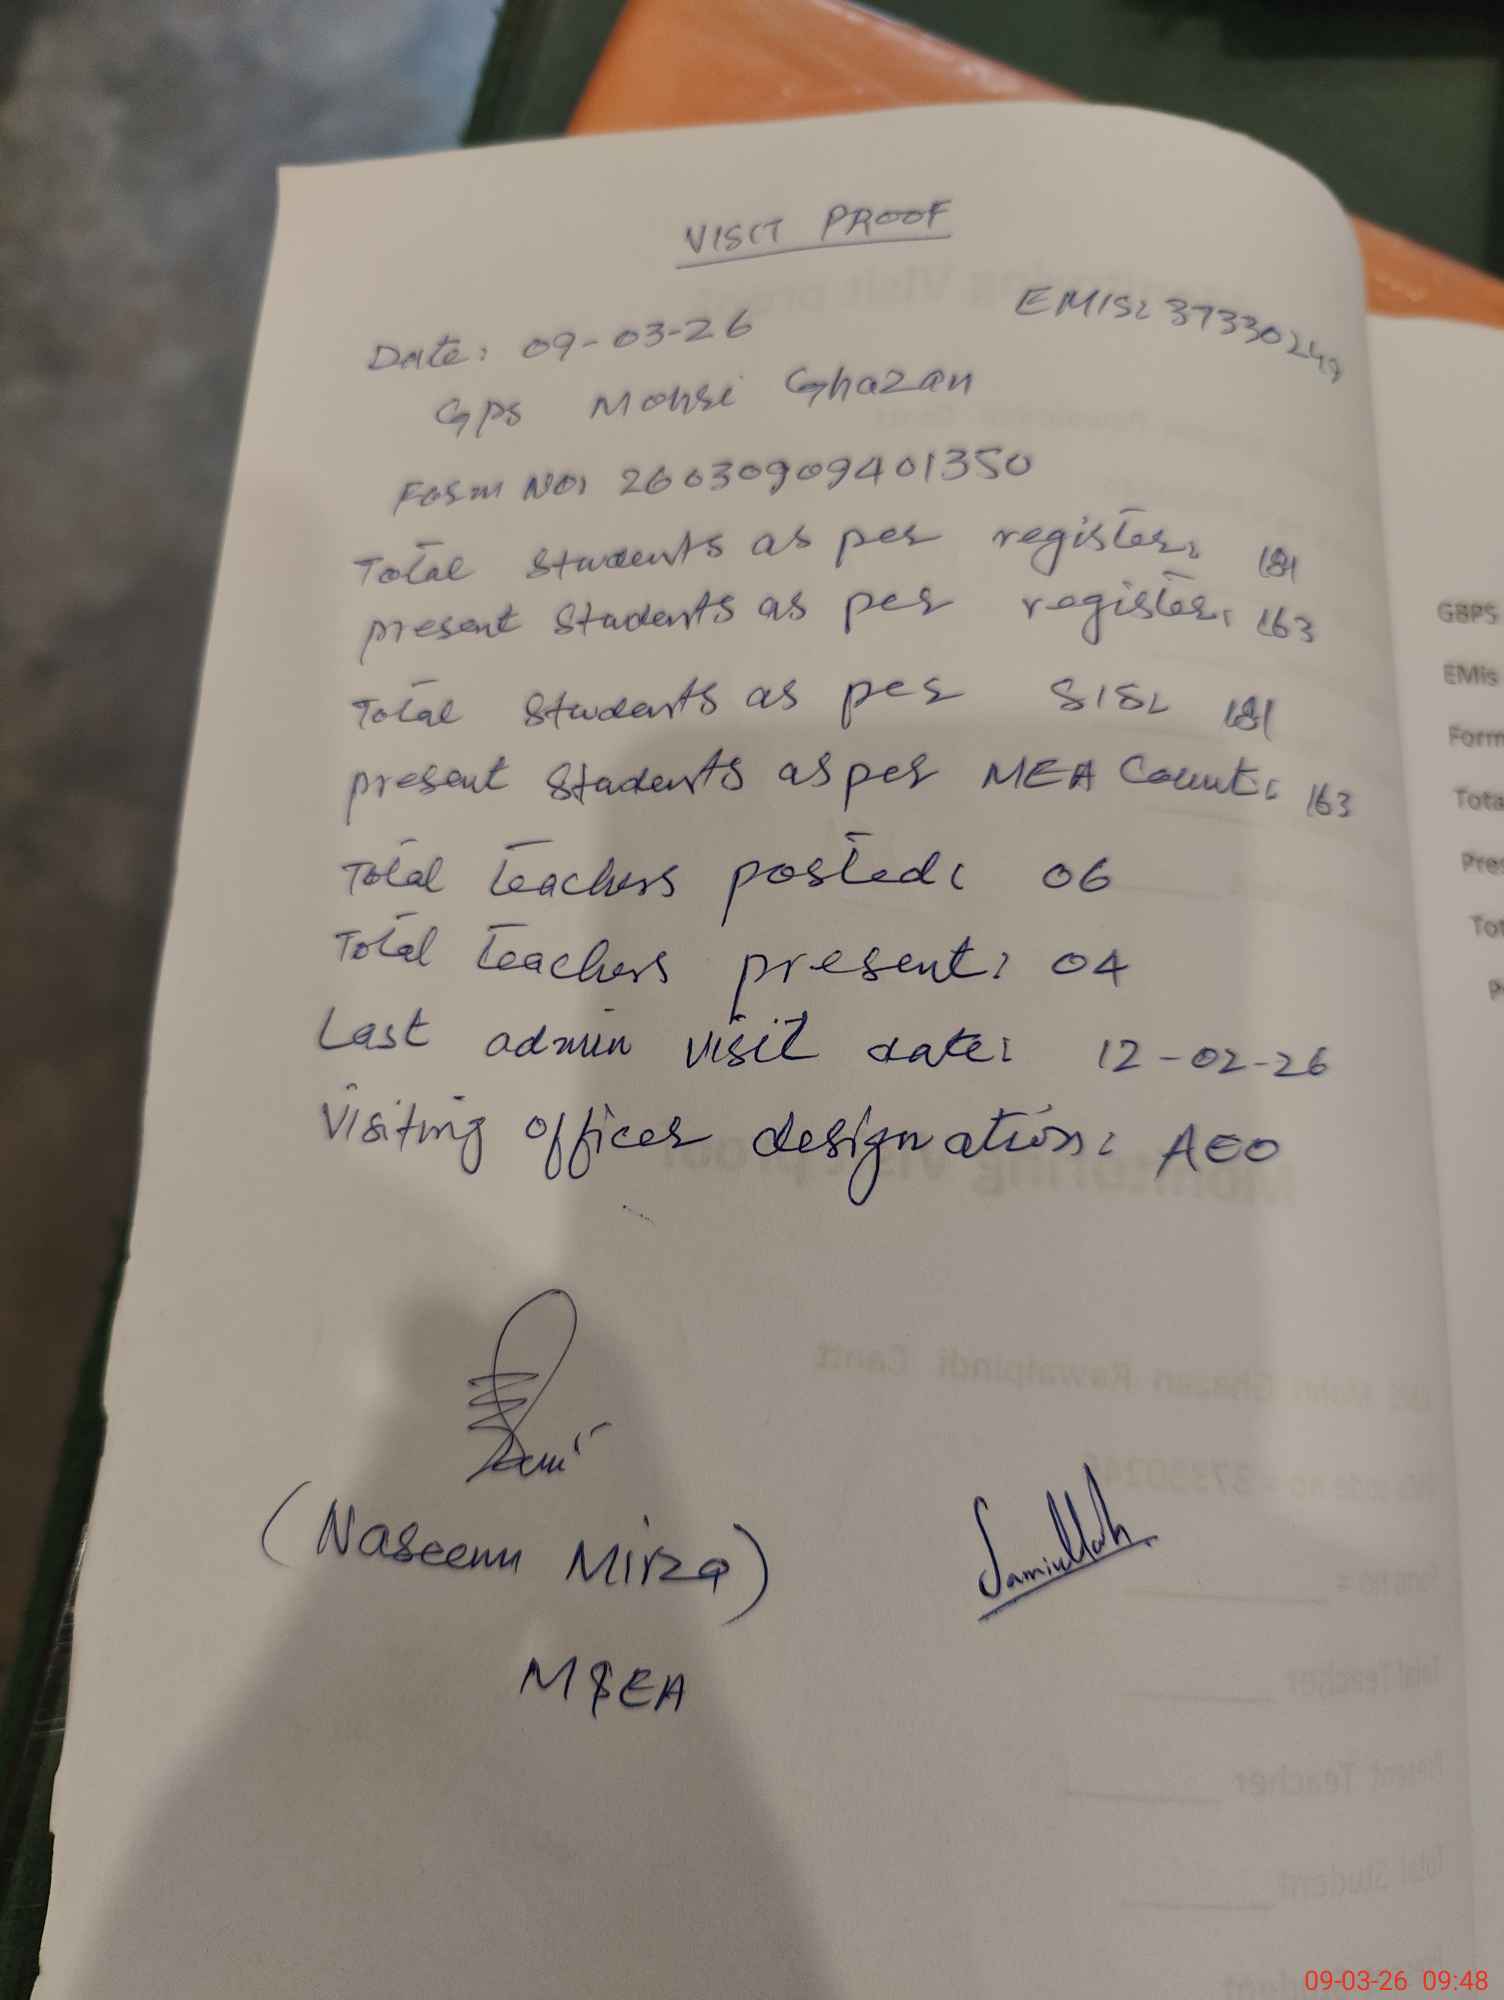 VISIT PROOF
EMIS: 37330249
Date: 09-03-26
GPS Mohri Ghazan
Form NO: 26030909401350
Total Students as per register: 181
present Students as per register: 163
Total Students as per SIS: 181
present Students as per MEA Count: 163
Total teachers posted: 06
Total teachers present: 04
Last admin visit date: 12-02-26
Visiting officer designation: AEO
(Naseem Mirza)
Samiullah
MEA
GBPS
EMis
Form
Tota
Pres
Tot
P
09-03-26 09:48